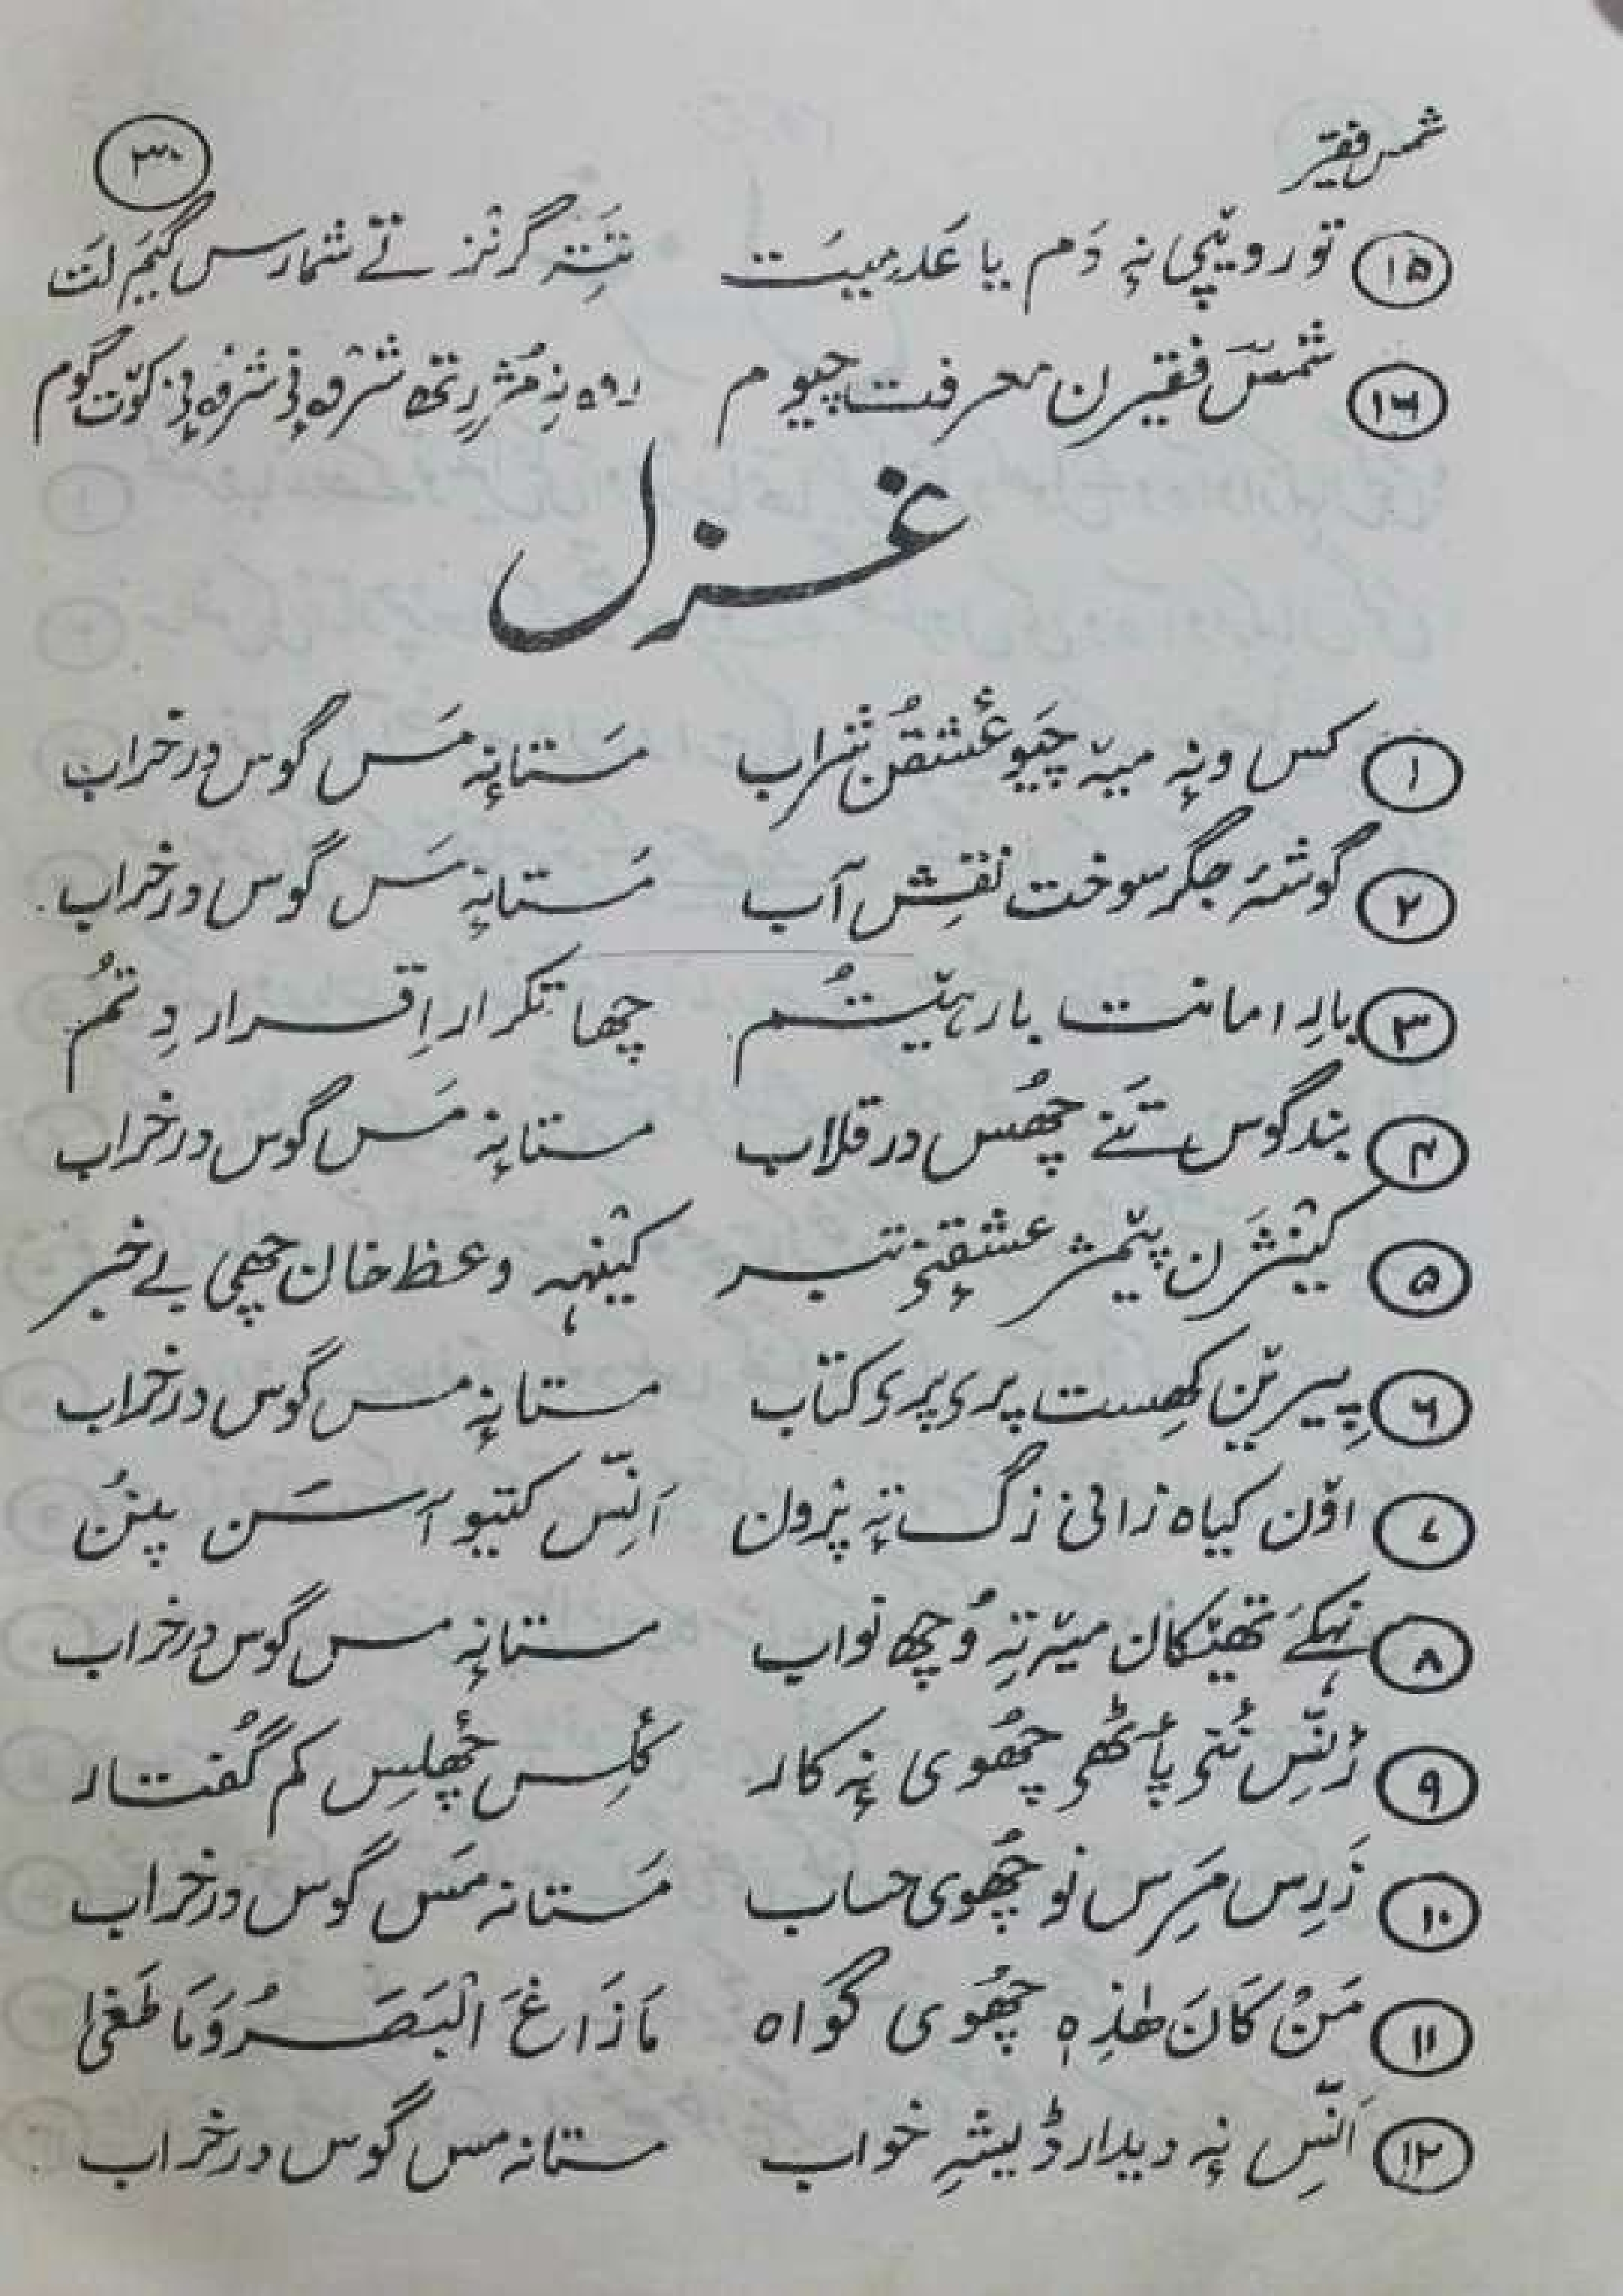 شمس فقیر
۳۰
۱۵ تور ویٚچی نہٕ دَم یا عَدمیت تَتِہ گرٛنز تے شمارس گیَم لَت
۱۶ شمسؔ فقیرن معرفت چیوم روہ نہٕ مُشرِتھ شرفہٕ نی شرفہٕ نی کوٚت گوم
غزل
۱ کس ونہٕ میہٚ چیَو عٔشقُن شراب مَستانہٕ مَس گوس در خراب
۲ گوشۂ جگر سوخت نقشِ آب مَستانہٕ مَس گوس در خراب
۳ بارِ امانت بار ہیٚتُم چھا تکرار اِقرار دِتمُ
۴ بند گوس تَنے چھُس در قلاب مستانہٕ مَس گوس در خراب
۵ کینٛژَن پیٚمژ عشقنی تبر کینٛہہ وعظ خان چھِی بے خبر
۶ پیریٚن کھست پری پری کتاب مستانہٕ مس گوس در خراب
۷ اوٚن کیاہ زانی زگ تہٕ پرٛون اَنِس کتیو آسَن پنُن
۸ نہکَے تھیٚکان میٚہ تہٕ وُچھ نواب مستانہٕ مس گوس در خراب
۹ زٔنِس نٔتی پأٹھی چھُوی نہٕ کار کٔلِس چھٔلِس کم گُفتار
۱۰ زَرِس مَرِس نو چھُوی حساب مَستانہ مَس گوس در خراب
۱۱ مَنْ کَانَ ھٰذِہٖ چھُوی گواہ مَا زَاغَ الْبَصَرُ وَمَا طَغیٰ
۱۲ اَنِّس نہٕ دیدار ڈیشہِ خواب مستانہ مس گوس در خراب